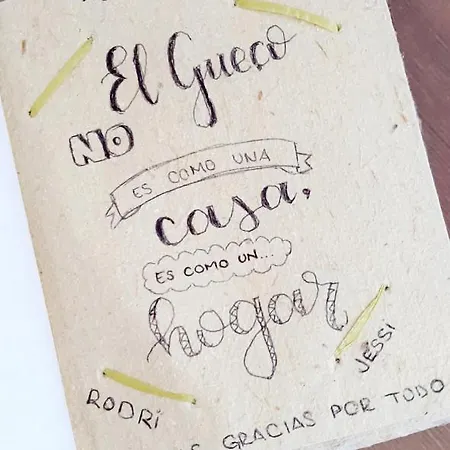 El Gueco
NO
ES COMO UNA
casa,
ES COMO UN...
hogar
JESSI
RODRI
GRACIAS POR TODO